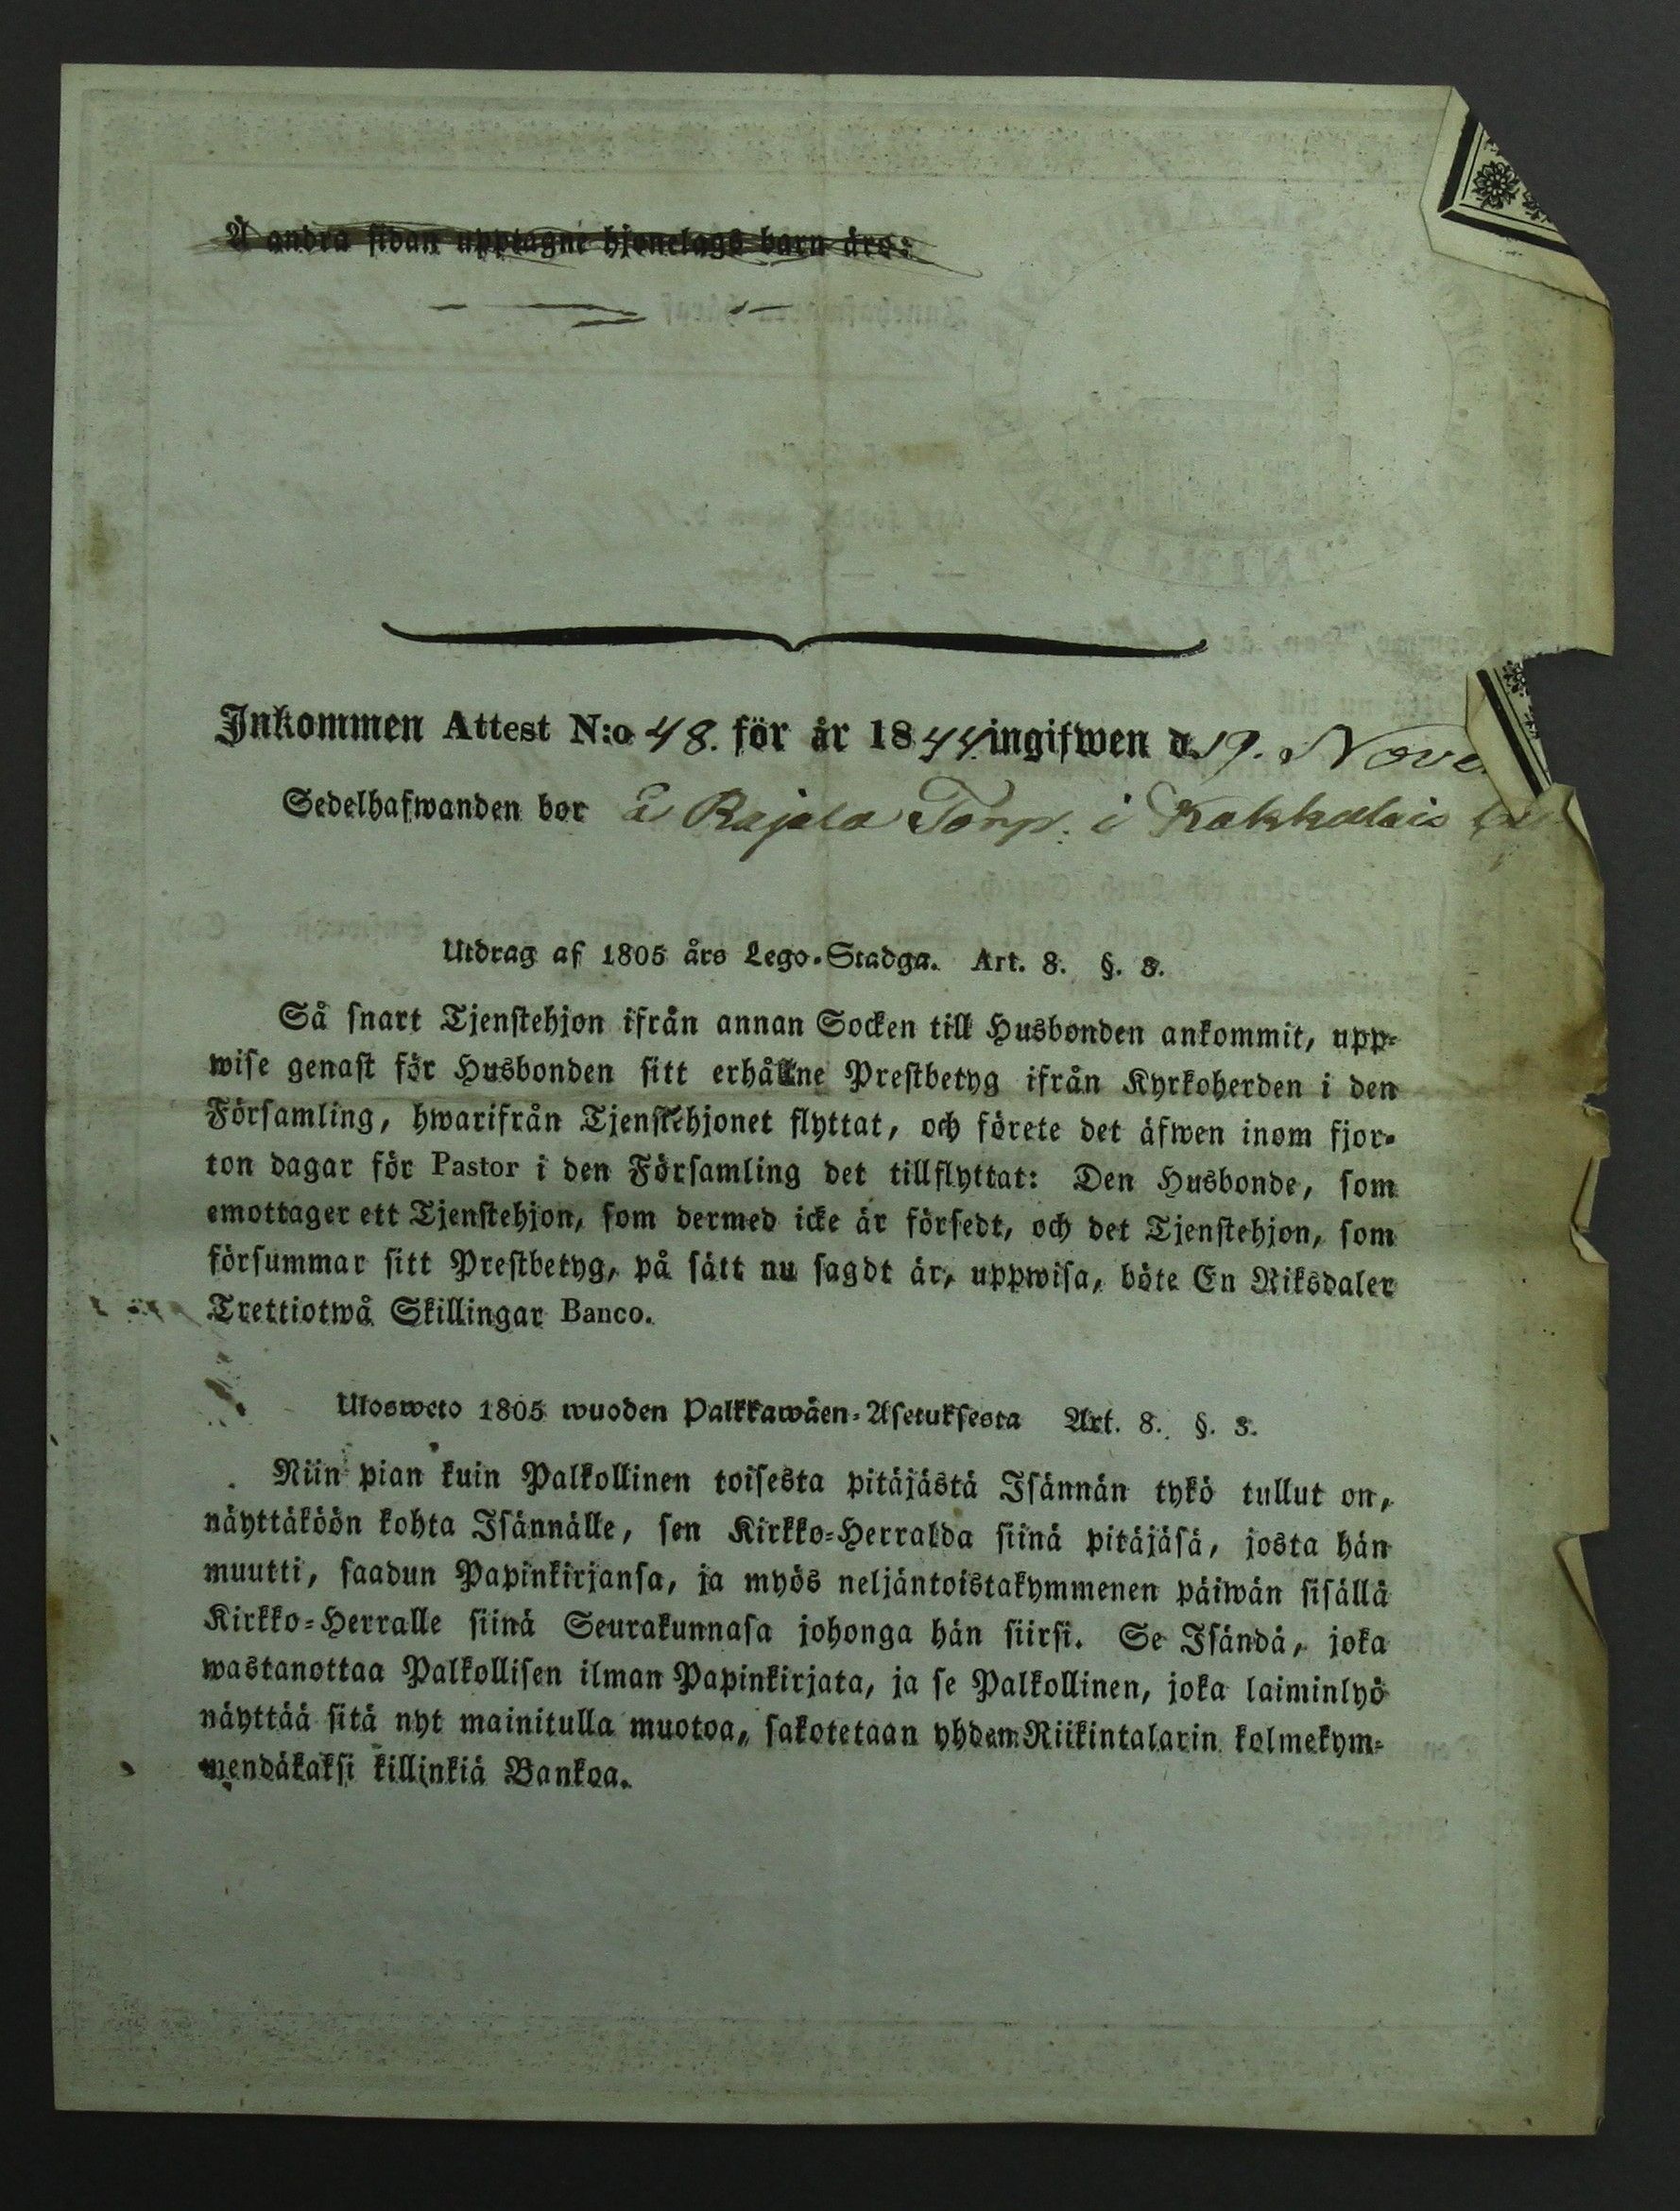 Å andra sidan upptagne hjonelags barn äro:
Inkommen Attest N:o 48. för år 1844 ingifwen d. 19. Nove
Sedelhafwanden bor å Rajala Torp. i Kakkalais
Utdrag af 1805 års Lego-Stadga. Art. 8. §. 3.
Så snart Tjenstehjon ifrån annan Socken till Husbonden ankommit, upp-
wise genast för Husbonden sitt erhållne Prestbetyg ifrån Kyrkoherden i den
Församling, hwarifrån Tjenstehjonet flyttat, och förete det äfwen inom fjor-
ton dagar för Pastor i den Församling det tillflyttat: Den Husbonde, som
emottager ett Tjenstehjon, som dermed icke är försedt, och det Tjenstehjon, som
försummar sitt Prestbetyg, på sätt nu sagdt är, uppwisa, böte En Riksdaler
Trettiotwå Skillingar Banco.
Ulosweto 1805 wuoden Palkkawäen-Asetuksesta Art. 8. §. 3.
Niin pian kuin Palkollinen toisesta pitäjästä Isännän tykö tullut on,
näyttäköön kohta Isännälle, sen Kirkko-Herralda siinä pitäjäsä, josta hän
muutti, saadun Papinkirjansa, ja myös neljäntoistakymmenen päiwän sisällä
Kirkko-Herralle siinä Seurakunnasa johonga hän siirsi. Se Isändä, joka
wastanottaa Palkollisen ilman Papinkirjata, ja se Palkollinen, joka laiminlyö
näyttää sitä nyt mainitulla muotoa, sakotetaan yhden Riikintalarin kolmekym-
mendäkaksi killinkiä Bankoa.